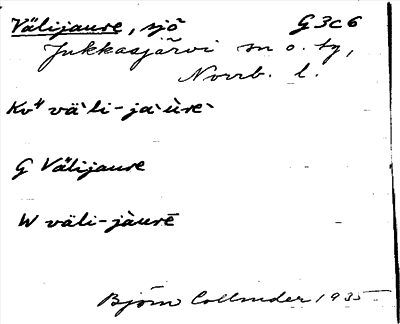 Välijaure, sjö G3c6
Jukkasjärvi sn o. tg,
Norrb. l.
Kv" vä`li-ja`ùre`
G Välijaure
W väli-jàurē
Björn Collinder 1935